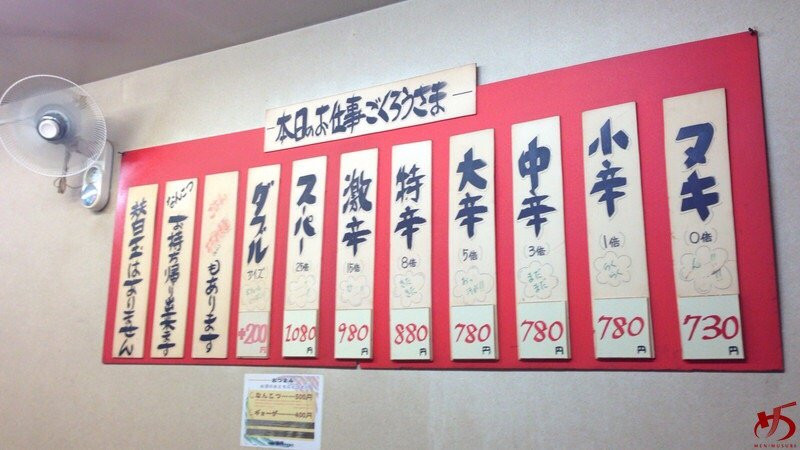 本日のお仕事ごくろうさま
ヌキ
0倍
730円
小辛
1倍
わくわく
780円
中辛
3倍
まだまだ
780円
大辛
5倍
780円
特辛
8倍
まだまだ
880円
激辛
15倍
980円
スーパー
25倍
1080円
ダブル
アイズ
+200円
もあります
なんこつ
お持ち帰り出来ます
替白玉はありません
おつまみ
なんこつ 300円
ギョーザ 400円
MENMUSUBI